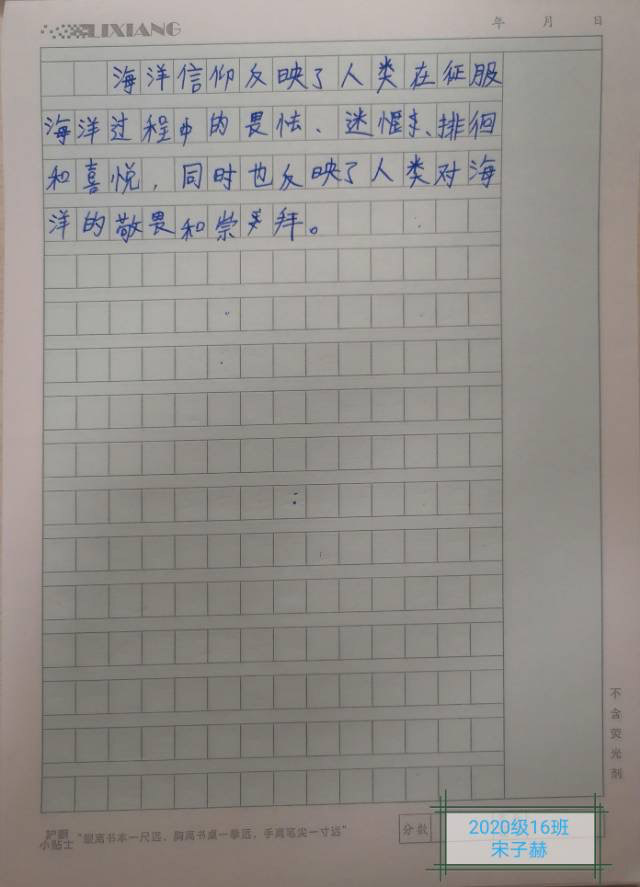 LIXIANG
年 月 日
海洋信仰反映了人类在征服
海洋过程中的畏怯、迷惘、徘徊
和喜悦，同时也反映了人类对海
洋的敬畏和崇拜。
不含荧光剂
护眼
小贴士
"眼离书本一尺远，胸离书桌一拳远，手离笔尖一寸远"
分数
2020级16班
宋子赫